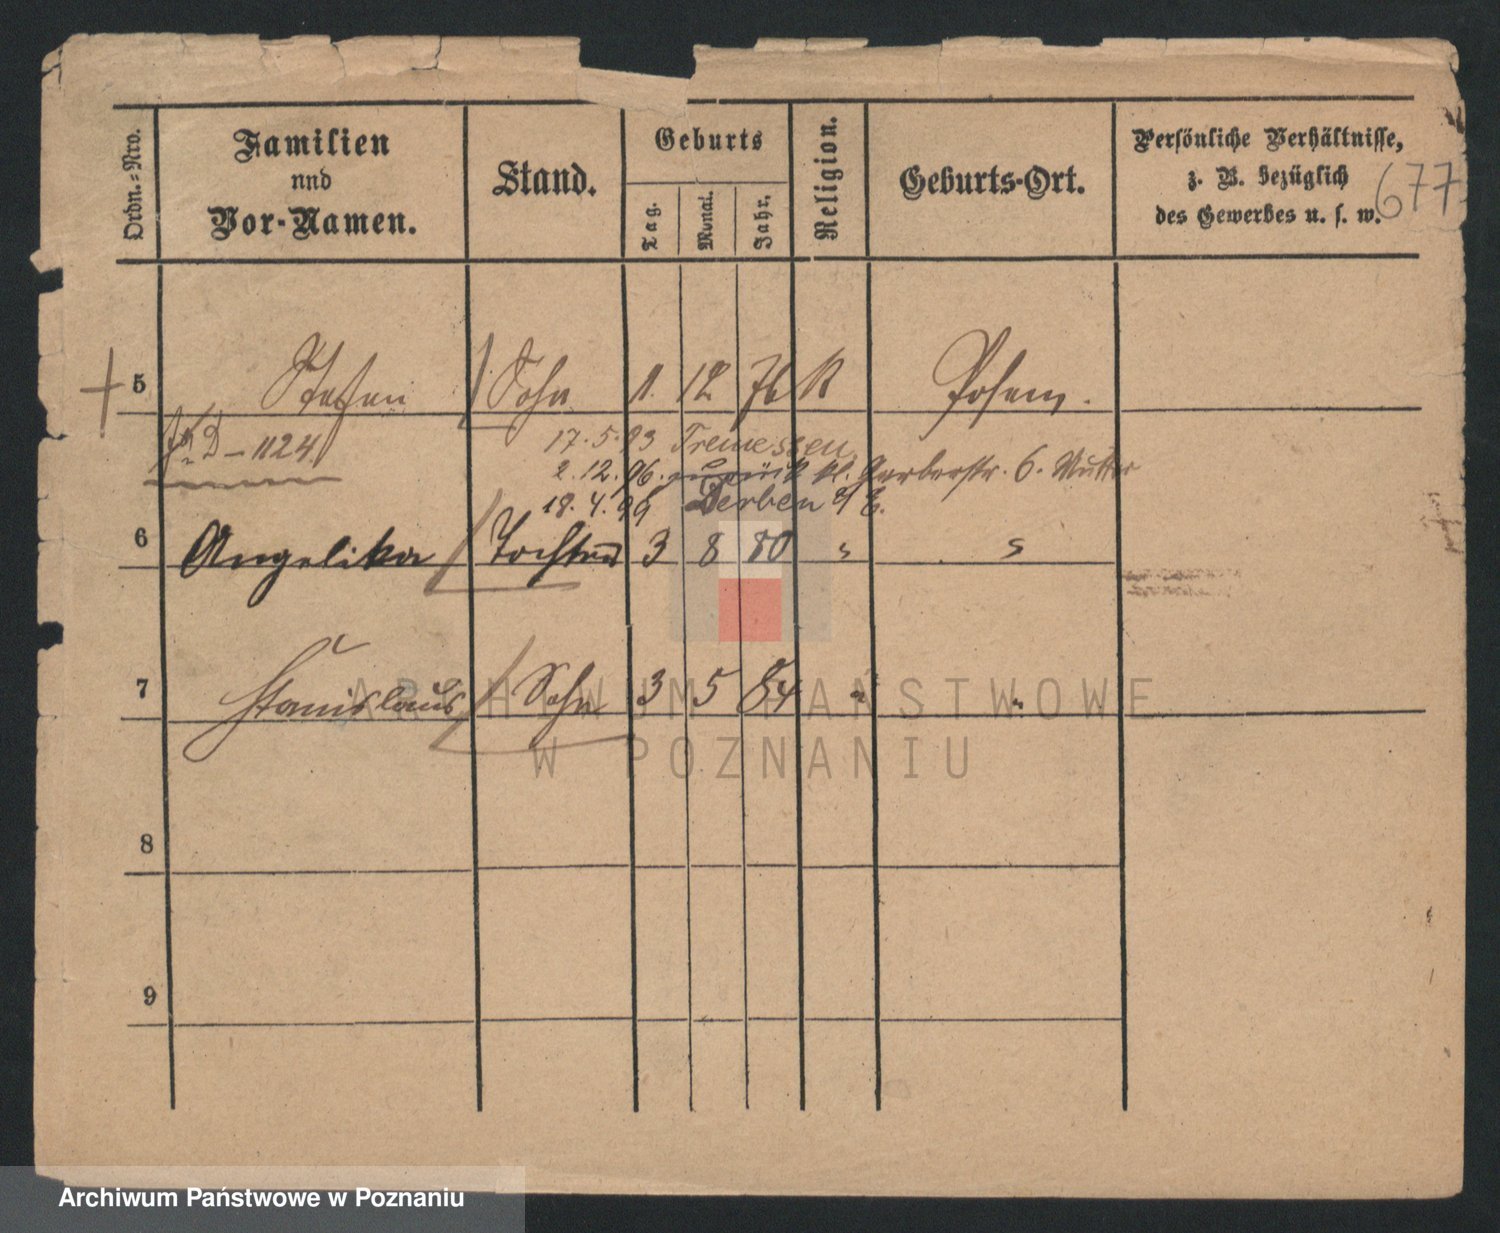 Ordn.-Nro.
Familien
und
Vor-Namen.
Stand.
Geburts
Tag.
Monat.
Jahr.
Religion.
Geburts-Ort.
Persönliche Verhältnisse,
z. B. bezüglich
des Gewerbes u. s. w.
677
5 Stefan Sohn 1. 12 76 K Posen.
D - 1124.
17.5.93 Tremessen
2.12.96. zurück kl. Gerberstr. 6. Mutter
18.4.99 Derben
6 Angelika Tochter 3 8 80 " "
7 Stanislaus Sohn 3 5 84 " "
8
9
ARCHIWUM PAŃSTWOWE
W POZNANIU
Archiwum Państwowe w Poznaniu